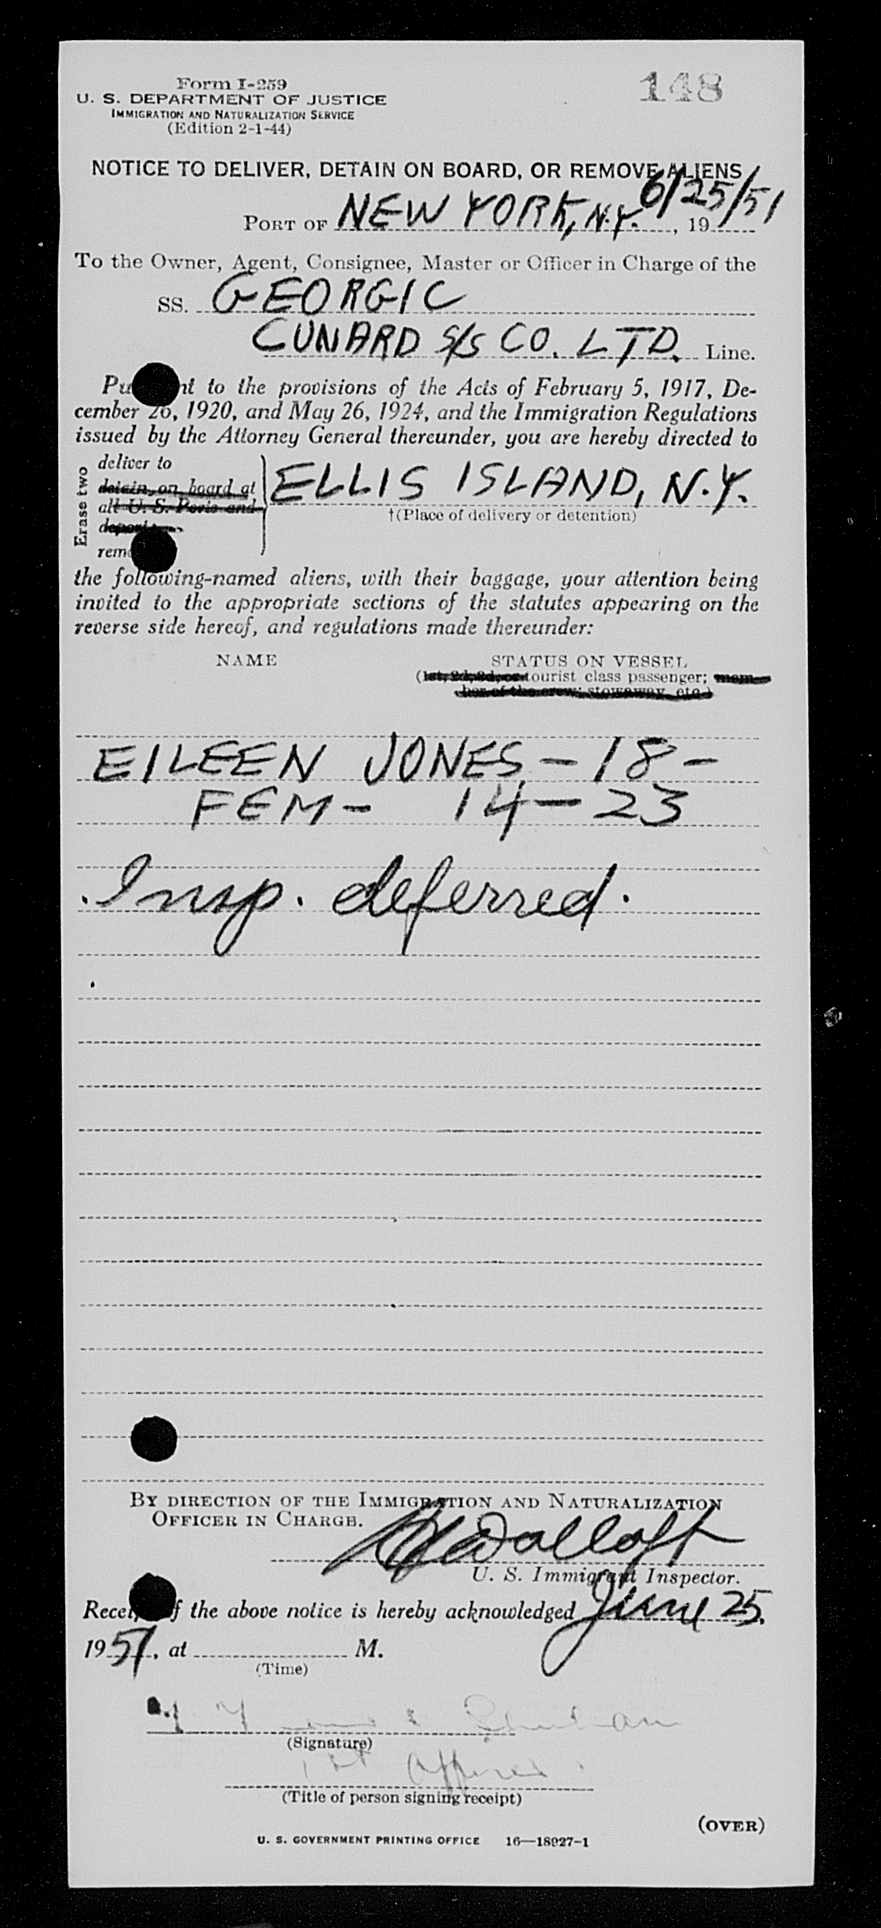 Form I-259
148
U. S. DEPARTMENT OF JUSTICE
IMMIGRATION AND NATURALIZATION SERVICE
(Edition 2-1-44)
NOTICE TO DELIVER, DETAIN ON BOARD, OR REMOVE ALIENS
6/25/51
PORT OF NEW YORK, N.Y. , 19
To the Owner, Agent, Consignee, Master or Officer in Charge of the
SS. GEORGIC
CUNARD S/S CO. LTD. Line.
Pu nt to the provisions of the Acts of February 5, 1917, De-
cember 26, 1920, and May 26, 1924, and the Immigration Regulations
issued by the Attorney General thereunder, you are hereby directed to
Erase two
deliver to
detain on board at
all U. S. Ports and
deport
rem
ELLIS ISLAND, N.Y.
†(Place of delivery or detention)
the following-named aliens, with their baggage, your attention being
invited to the appropriate sections of the statutes appearing on the
reverse side hereof, and regulations made thereunder:
NAME STATUS ON VESSEL
(1st, 2d, 3d, or tourist class passenger; mem-
ber of the crew; stowaway, etc.)
EILEEN JONES - 18 -
FEM - 14 - 23
Insp. deferred.
BY DIRECTION OF THE IMMIGRATION AND NATURALIZATION
OFFICER IN CHARGE.
U. S. Immigrant Inspector.
Recei f the above notice is hereby acknowledged June 25,
1951, at M.
(Time)
(Signature)
1st Officer.
(Title of person signing receipt)
(OVER)
U. S. GOVERNMENT PRINTING OFFICE 16—18027-1